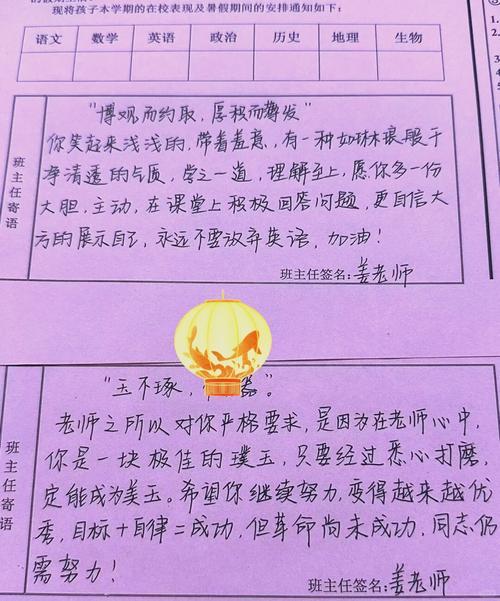 现将孩子本学期的在校表现及暑假期间的安排通知如下:
语文 数学 英语 政治 历史 地理 生物
班主任寄语
"博观而约取,厚积而薄发"
你笑起来浅浅的,带着羞意,有一种如琳琅般干
净清透的气质,学之一道,理解至上,愿你多一份
大胆,主动,在课堂上积极回答问题,更自信大
方的展示自己,永远不要放弃英语,加油!
班主任签名:姜老师
班主任寄语
"玉不琢,
老师之所以对你严格要求,是因为在老师心中,
你是一块极佳的璞玉,只要经过悉心打磨,
定能成为美玉。希望你继续努力,变得越来越优
秀,目标+自律=成功,但革命尚未成功,同志仍
需努力!
班主任签名:姜老师